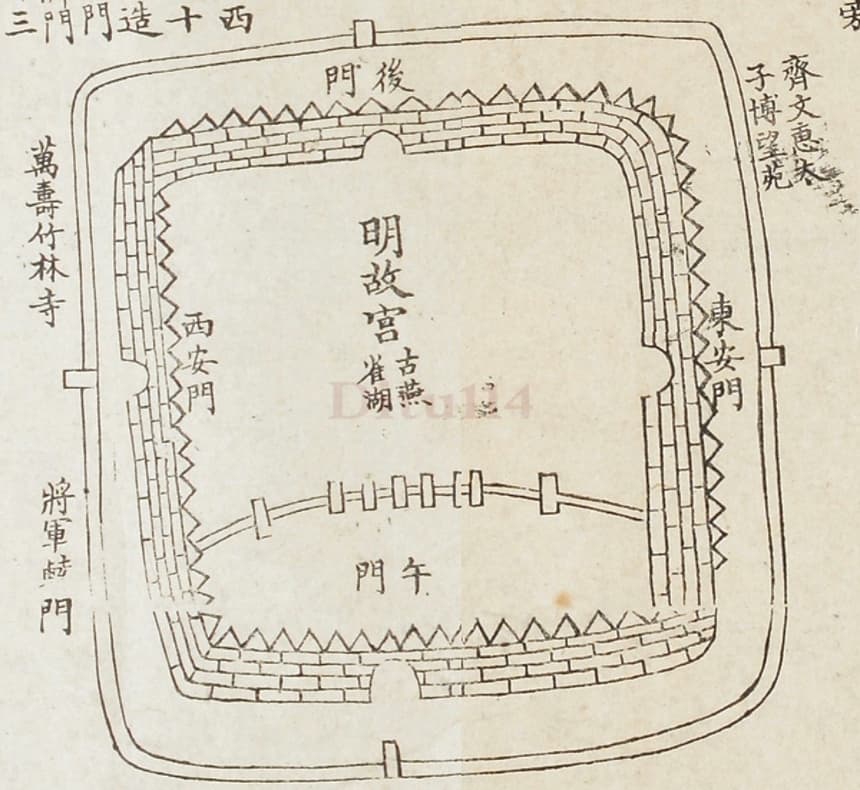 西十造門門三
後門
齊文惠太
子博望苑
東安門
明故宮
古燕
雀湖
西安門
午門
萬壽竹林寺
將軍
門
Ditu114